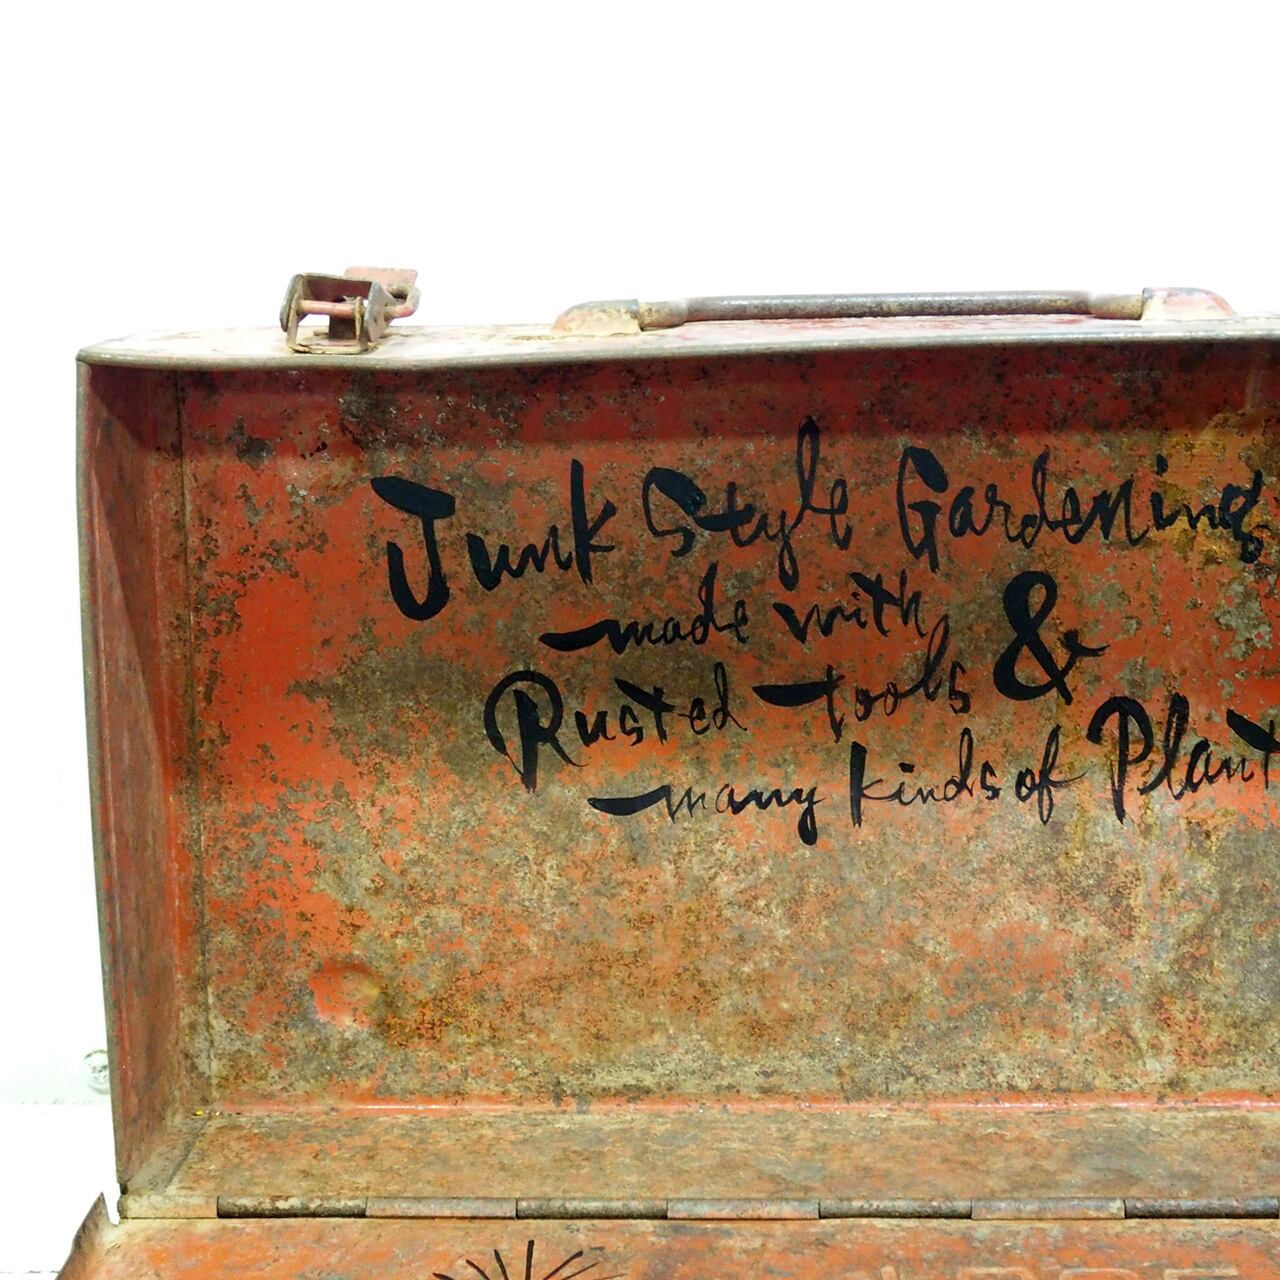 Junk Style Gardening
made with
Rusted tools &
many kinds of Plant